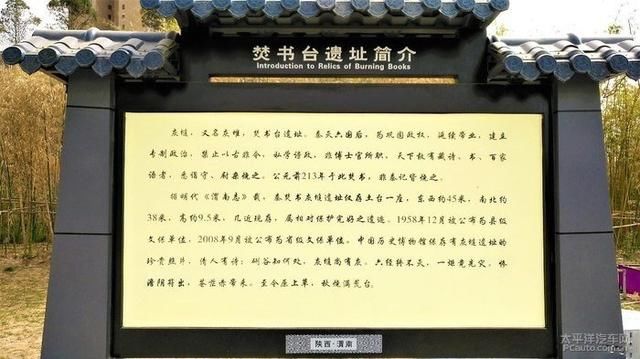 焚书台遗址简介
Introduction to Relics of Burning Books
灰堆，又名灰堆，焚书台遗址。秦灭六国后，为巩固政权，延续帝业，建立
专制政治，禁止以古非今，私学谤政，非博士官所职，天下敢有藏诗、书、百家
语者，悉诣守、尉杂烧之。公元前213年于此焚书，非秦记皆烧之。
据明代《渭南志》载，秦焚书灰堆遗址仅存土台一座，东西约45米，南北约
38米，高约9.5米，几近现存，属相对保护完好之遗迹。1958年12月被公布为县级
文保单位，2008年9月被公布为省级文保单位。中国历史博物馆保存有灰堆遗址的
珍贵照片，清人有诗：硎谷知何处，灰堆尚有灰。六经终不灭，一炬竟先灾。
阴符出，赤带来。至今原上草，秋烧满荒台。
陕西·渭南
太平洋汽车网
PCauto.com.cn